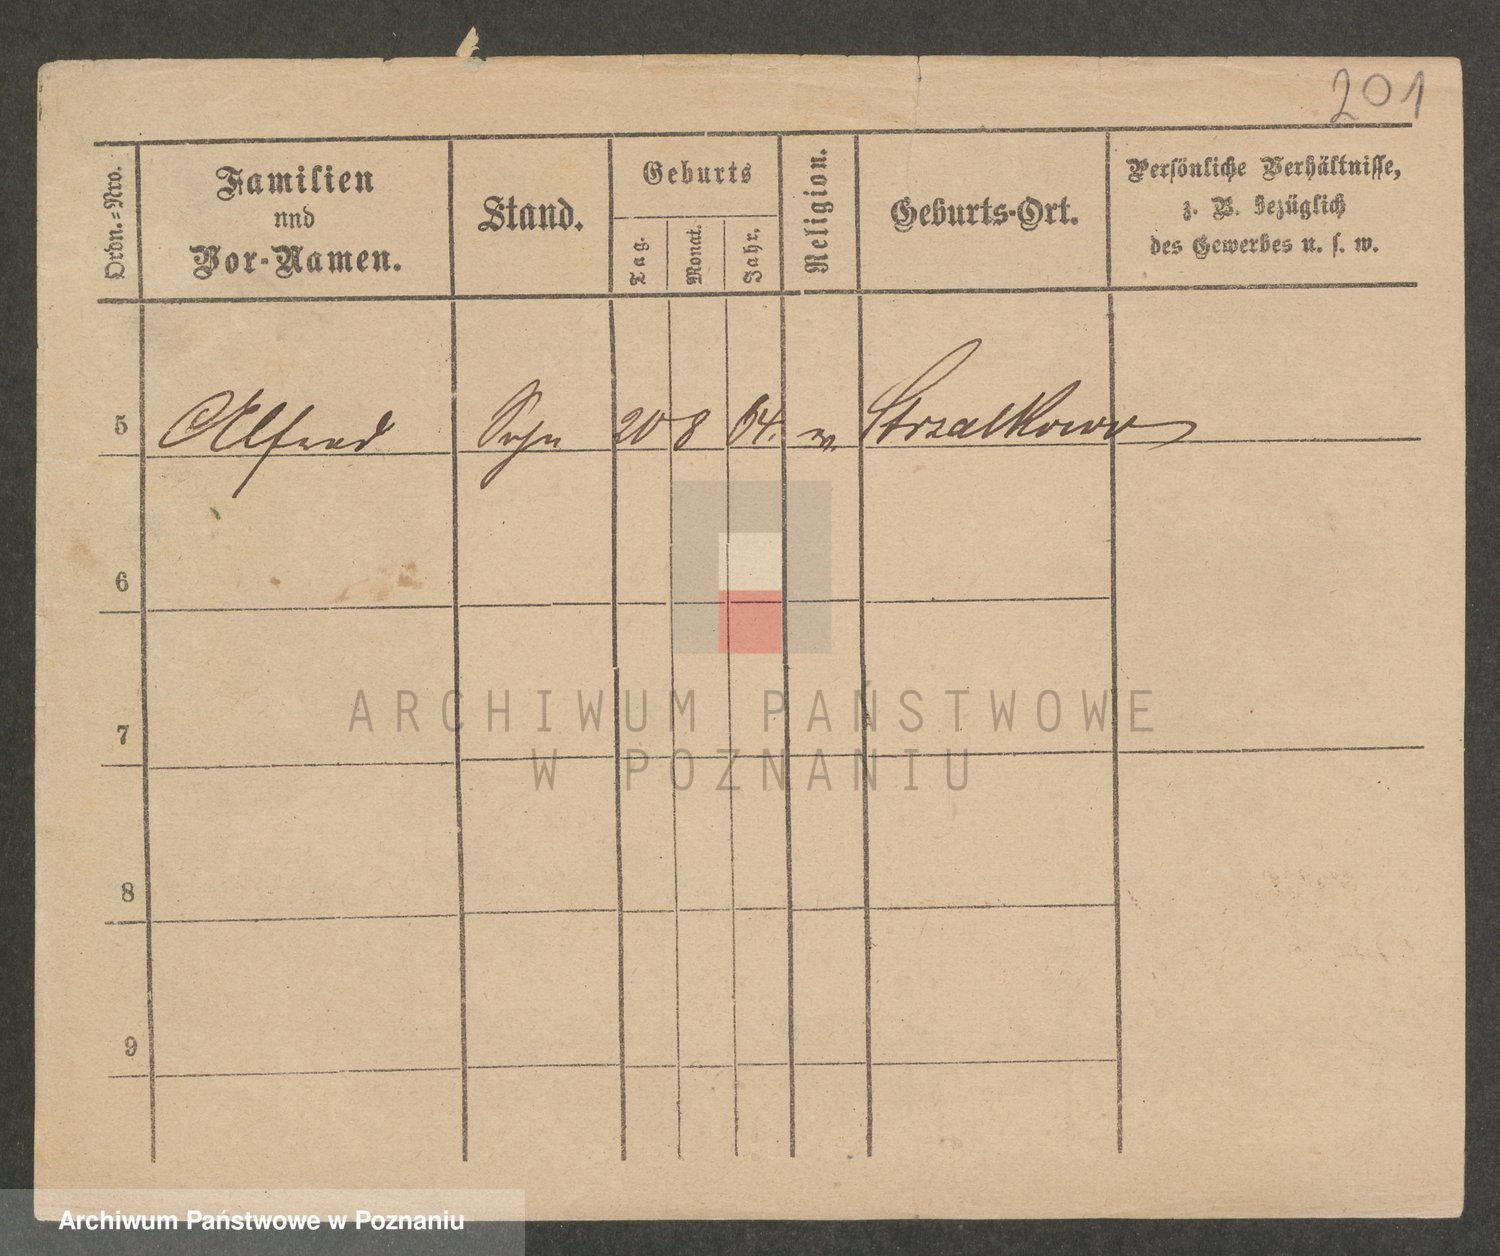 201
Ordn.=Nro.
Familien
und
Vor-Namen.
Stand.
Geburts
Tag.
Monat.
Jahr.
Religion.
Geburts-Ort.
Persönliche Verhältnisse,
z. B. bezüglich
des Gewerbes u. s. w.
5 Alfred Sohn 20 8 64. Strzalkowo
6
ARCHIWUM PAŃSTWOWE
7
W POZNANIU
8
9
Archiwum Państwowe w Poznaniu